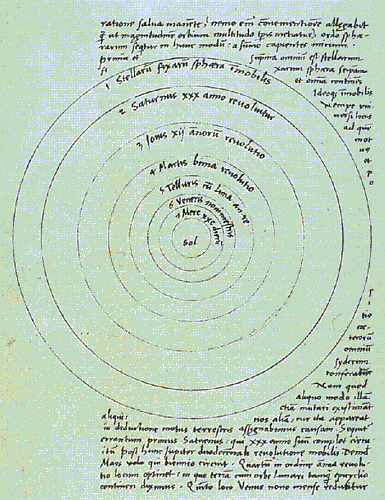 ratione salva manente, nemo em convenientiore allegabit
q ut magnitudinem orbium multitudo tpis metiatur, ordo sphæ-
rarum sequitur in hunc modu: a summo capientes initium.
prima et suprema omniu est stellarum
fixarum sphæra seipsam
et omnia continens
Ideoq immobilis
nempe uni-
versi locus
ad quem
mot
us
et
po
1 Stellarū fixarū sphæra immobilis
2 Saturnus xxx anno revoluitur
3 Iovis xij annorū revolutio
4 Martis bima revolutio
5 Telluris cū Luna an. re
6 Veneris nonimestris
7 Merc. xxc dierū
Sol
si
tio
cæ-
terorū
omniū
syderum
conferatur
Nam quod
aliquo modo illā
etiā mutari existimāt
aliqui: nos aliā, cur ita appareat
in deductione motus terrestris assignabimus causam. Sequit
errantium primus Saturnus: qui xxx anno suū complet circu
itū post hunc Jupiter duodecennali revolutione mobilis Deinde
Mars volo qui biennio circuit. Quartū in ordine annua revolu
tio locum optinet: in quo terrā cum orbe Lunari tanq epicyclio
contineri diximus. Quinto loco Venus nono mense reducitur